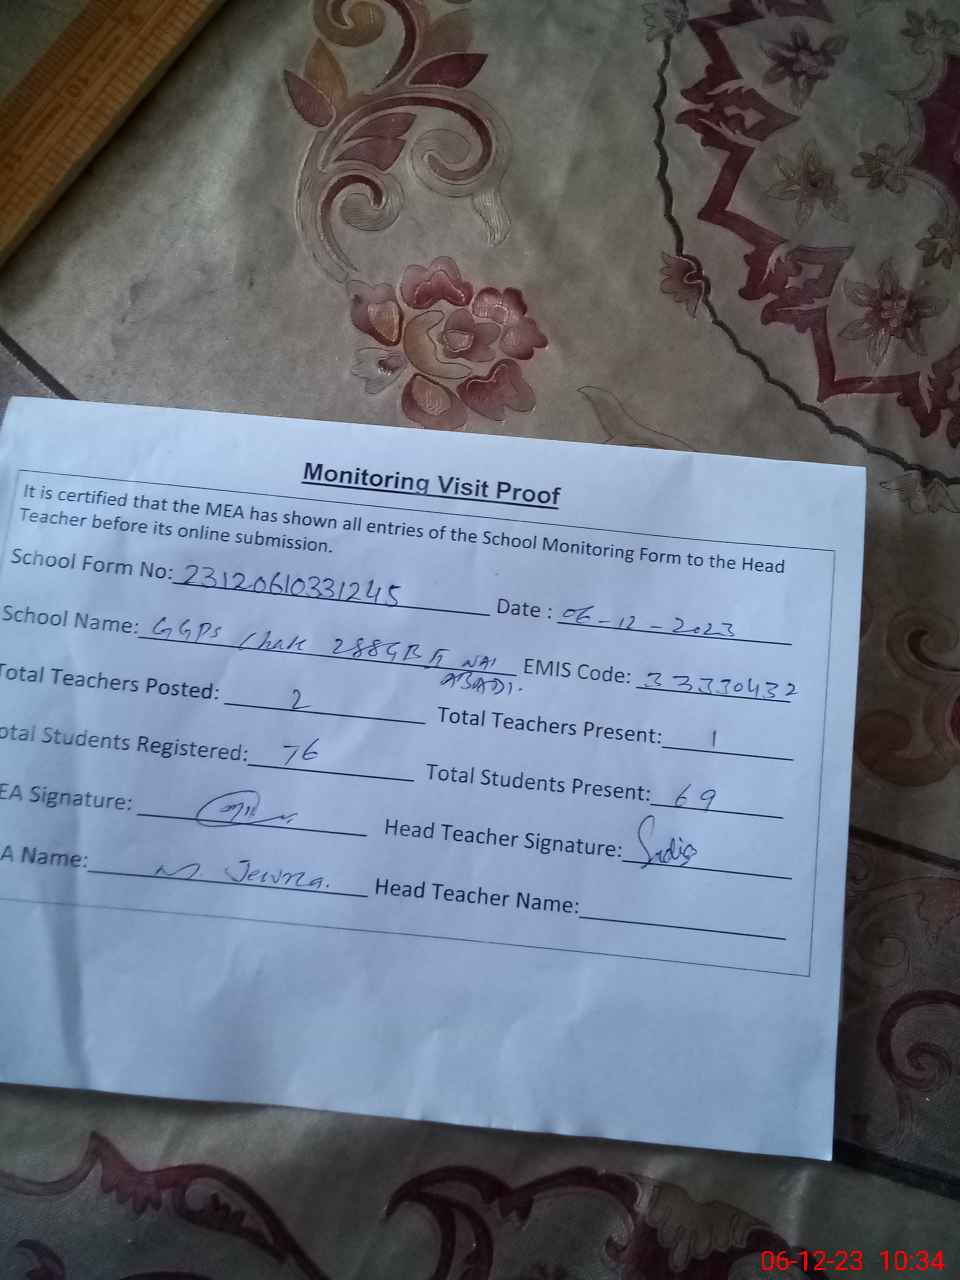 Monitoring Visit Proof
It is certified that the MEA has shown all entries of the School Monitoring Form to the Head
Teacher before its online submission.
School Form No: 23120610331245 Date : 06-12-2023
School Name: GGPS Chak 288GB NAI ABADI. EMIS Code: 33330432
Total Teachers Posted: 2 Total Teachers Present: 1
otal Students Registered: 76 Total Students Present: 69
EA Signature: Head Teacher Signature: Sadia
A Name: M. Head Teacher Name:
06-12-23 10:34